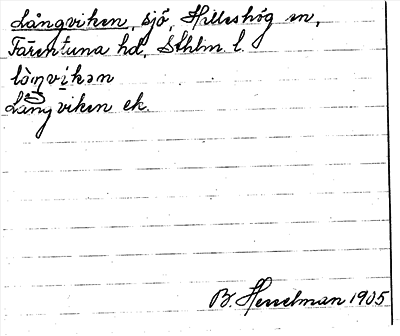 Långviken, sjö, Hilleshög sn,
Färentuna hd, Sthlm l.
Långviken ek.
B. Hesselman 1905